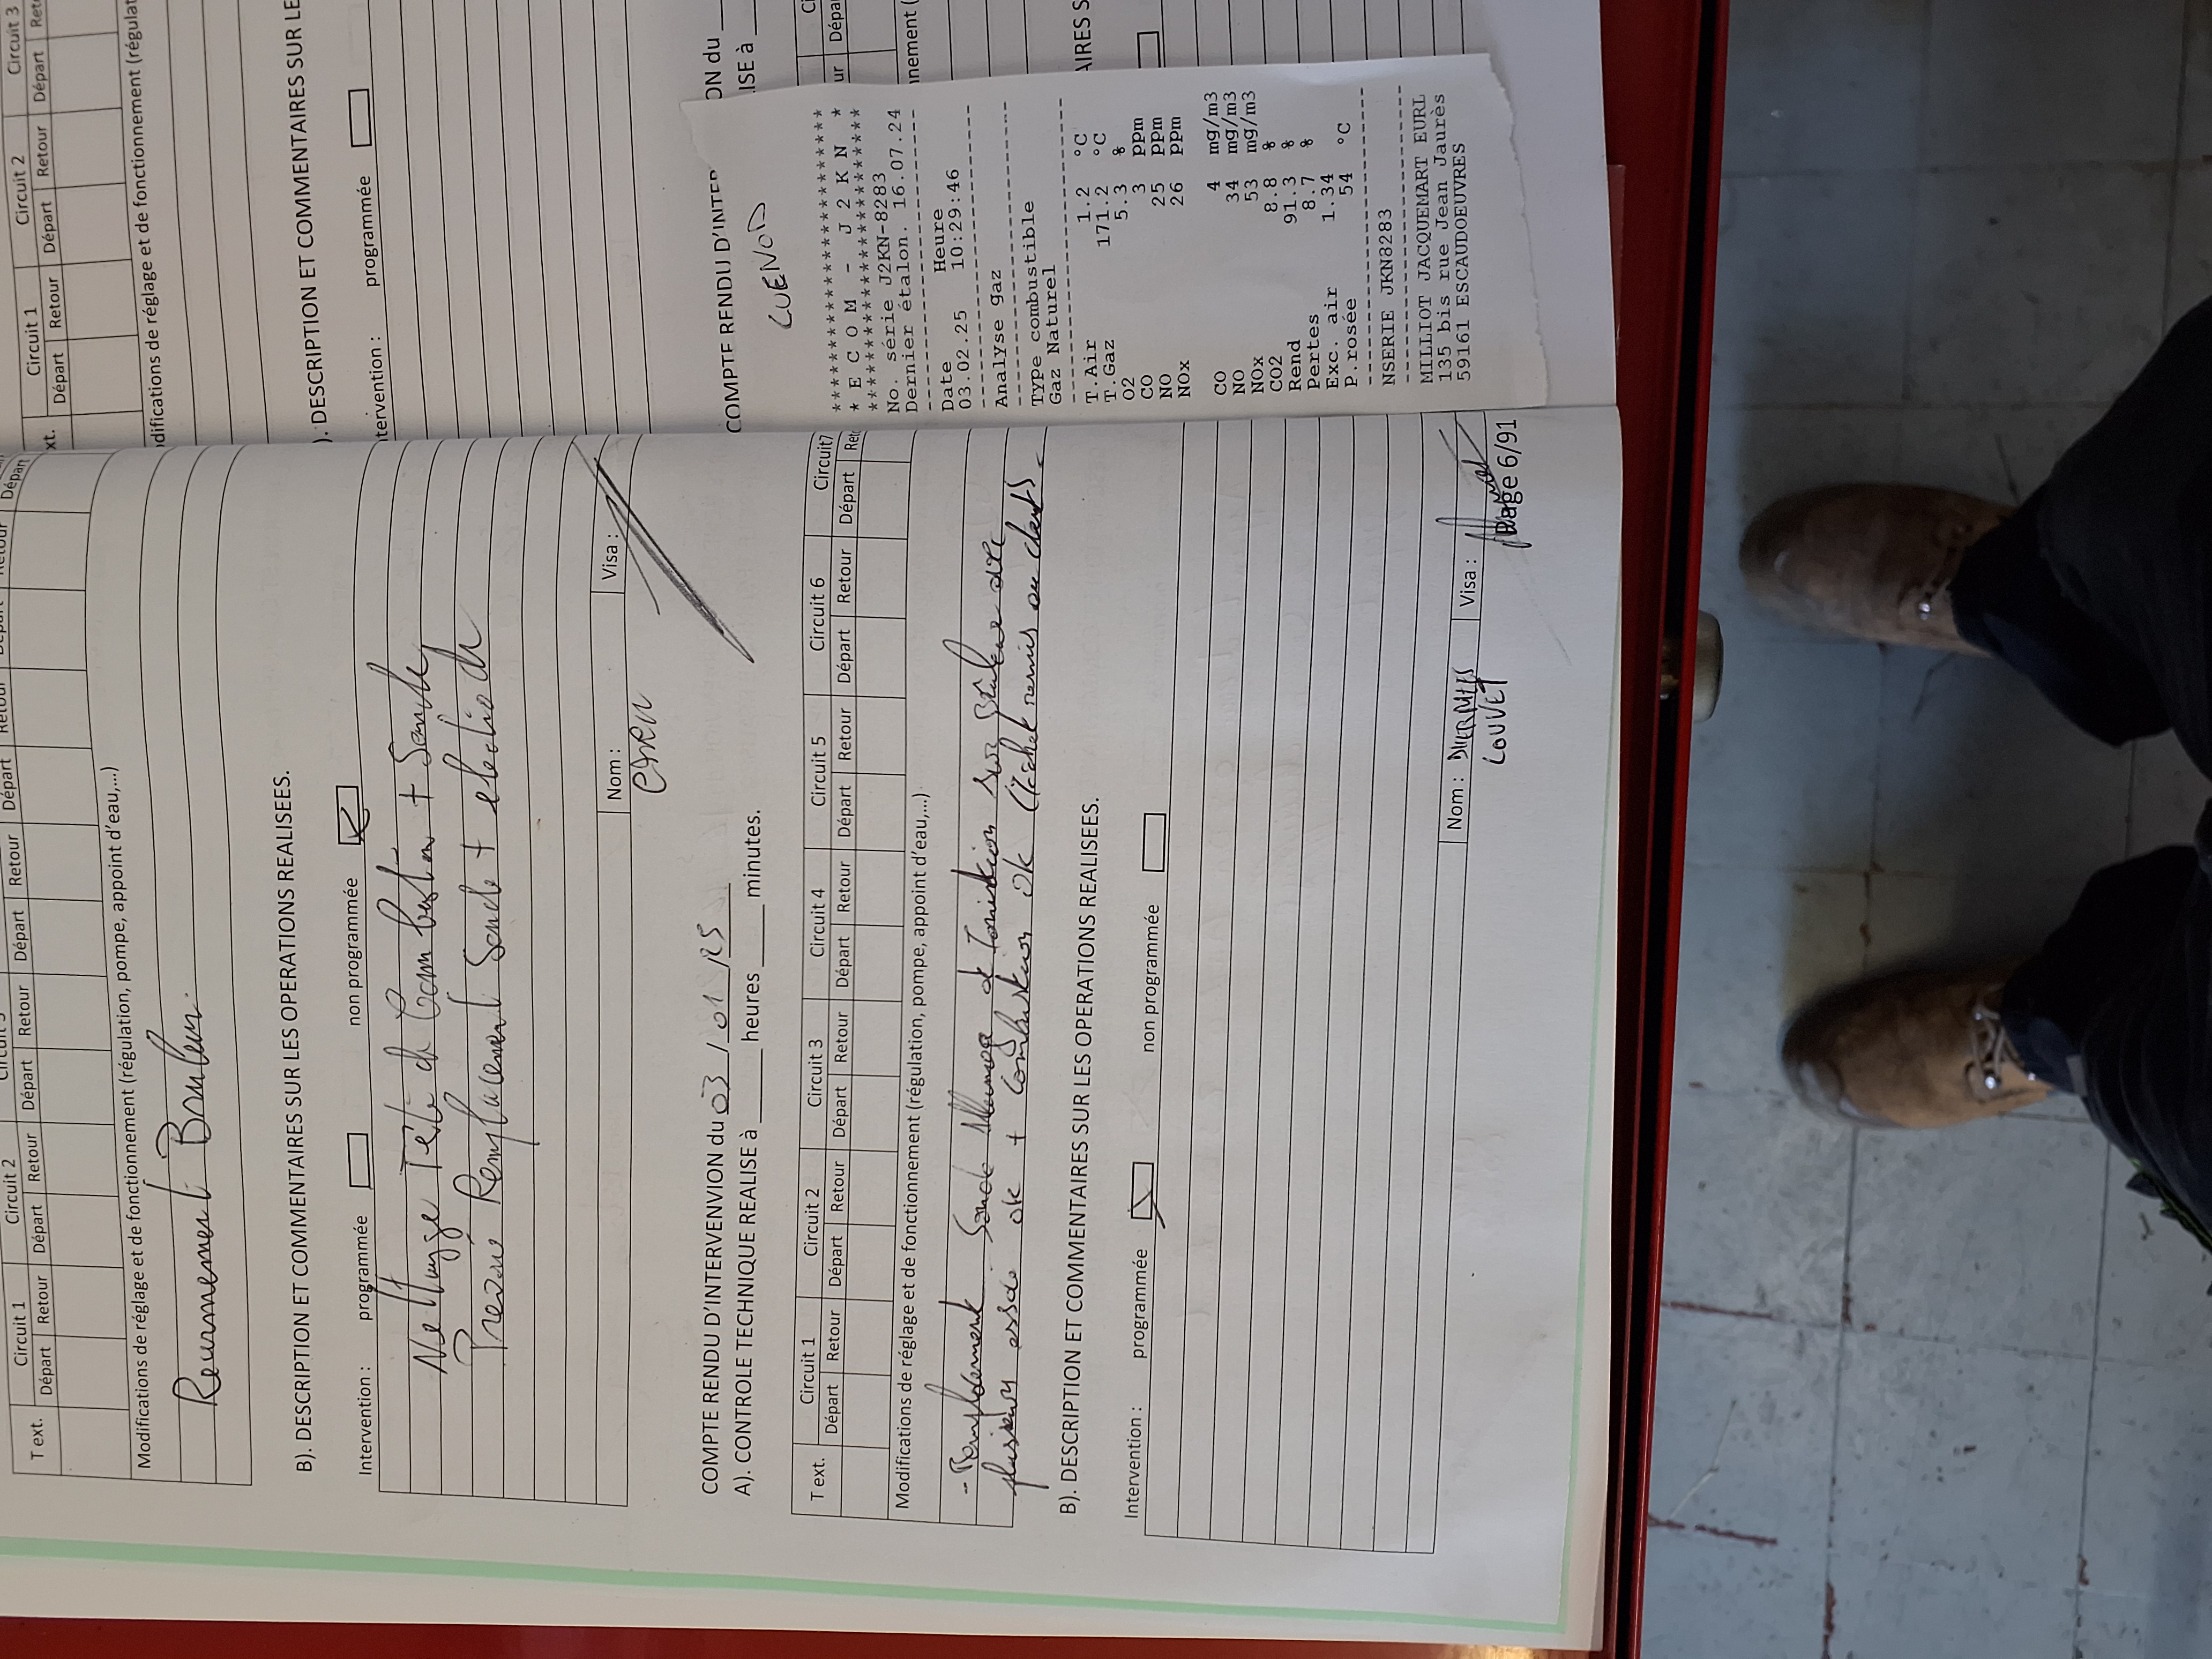 Circuit 1 Circuit 2
T ext. Départ Retour Départ Retour Départ Retour Départ Retour Départ
Modifications de réglage et de fonctionnement (régulation, pompe, appoint d'eau,...)
B). DESCRIPTION ET COMMENTAIRES SUR LES OPERATIONS REALISEES.
Intervention : programmée non programmée
Nettoyage Tête de Combustion + Sonde
Remplacement Sonde + electrode
Nom : Visa :
COMPTE RENDU D'INTERVENVION du 03 / 01 /25
A). CONTROLE TECHNIQUE REALISE à ____ heures ____ minutes.
Circuit 1 Circuit 2 Circuit 3 Circuit 4 Circuit 5 Circuit 6 Circuit7
T ext. Départ Retour Départ Retour Départ Retour Départ Retour Départ Retour Départ Retour Départ
Modifications de réglage et de fonctionnement (régulation, pompe, appoint d'eau,...)
- Remplacement Sonde Allumage et Ionisation sur Brûleur avec
plusieurs essais ok + Combustion ok (Ticket remis au client) -
B). DESCRIPTION ET COMMENTAIRES SUR LES OPERATIONS REALISEES.
Intervention : programmée non programmée
Nom : Visa :
LOUVET
Page 6/91
Circuit 1 Circuit 2 Circuit 3
xt. Départ Retour Départ Retour Départ
difications de réglage et de fonctionnement (régulat
). DESCRIPTION ET COMMENTAIRES SUR LE
tervention : programmée
COMPTE RENDU D'INTER
ON du
ISE à
Dépa
nement (
AIRES S
*************************
* E C O M - J 2 K N *
*************************
No. série J2KN-8283
Dernier étalon. 16.07.24
Date Heure
03.02.25 10:29:46
Analyse gaz
Type combustible
Gaz Naturel
T.Air 1.2 °C
T.Gaz 171.2 °C
O2 5.3 %
CO 3 ppm
NO 25 ppm
NOx 26 ppm
CO 4 mg/m3
NO 34 mg/m3
NOx 53 mg/m3
CO2 8.8 %
Rend 91.3 %
Pertes 8.7 %
Exc. air 1.34
P.rosée 54 °C
NSERIE JKN8283
MILLIOT JACQUEMART EURL
135 bis rue Jean Jaurès
59161 ESCAUDOEUVRES